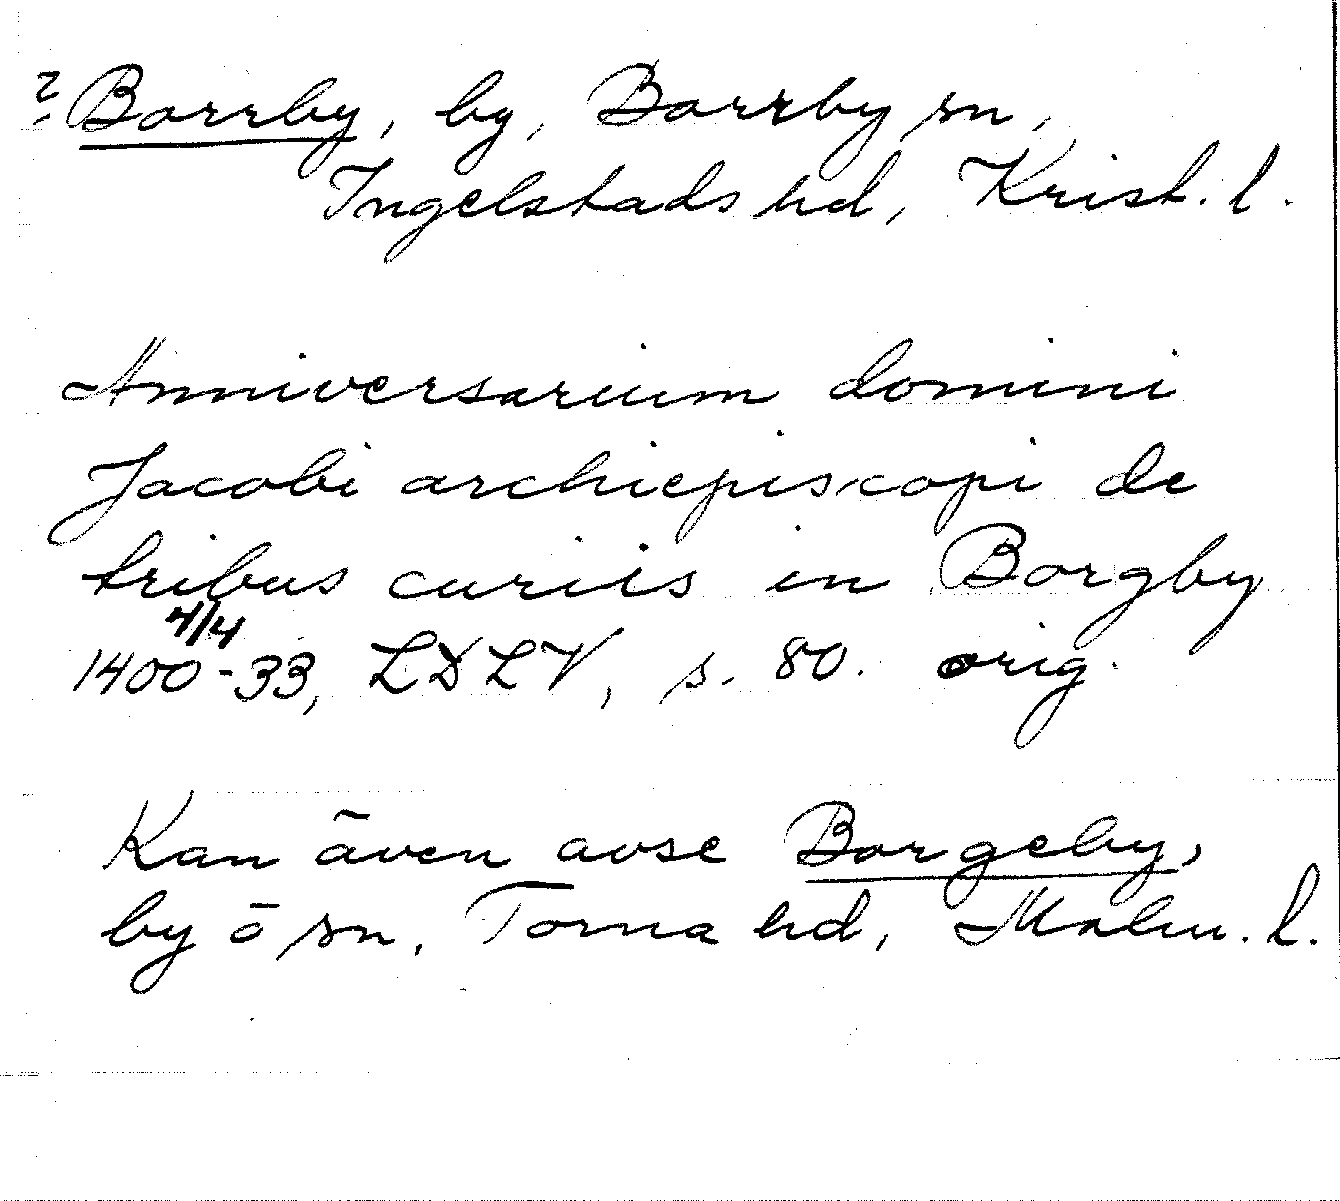 ? Borrby, by, Borrby sn,
Ingelstads hd, Krist. l.
Anniversarium domini
Jacobi archiepiscopi de
tribus curiis in Borgby
4/4
1400-33, LDLV, s. 80. orig.
Kan även avse Borgeby,
by o sn, Torna hd, Malm. l.